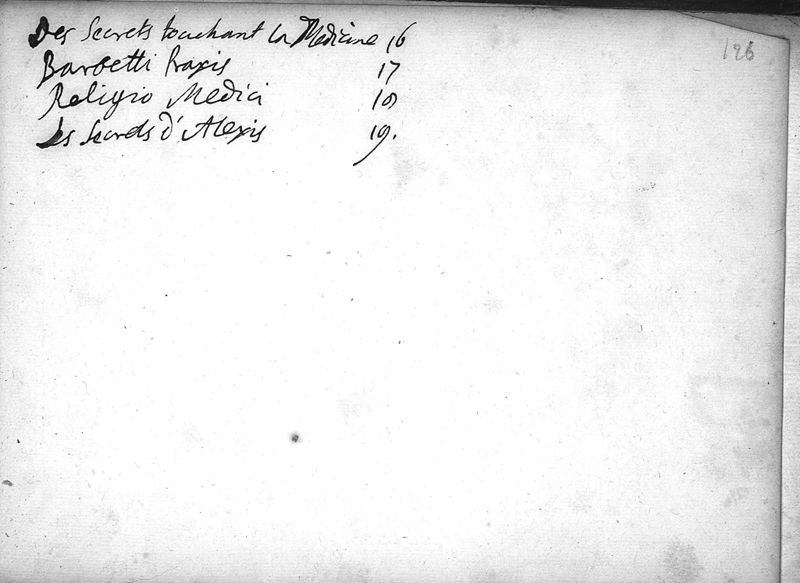 Des Secrets touchant la Medicine 16
Barbetti Praxis 17
Religio Medici 18
Les Secrets d'Alexis 19.
126